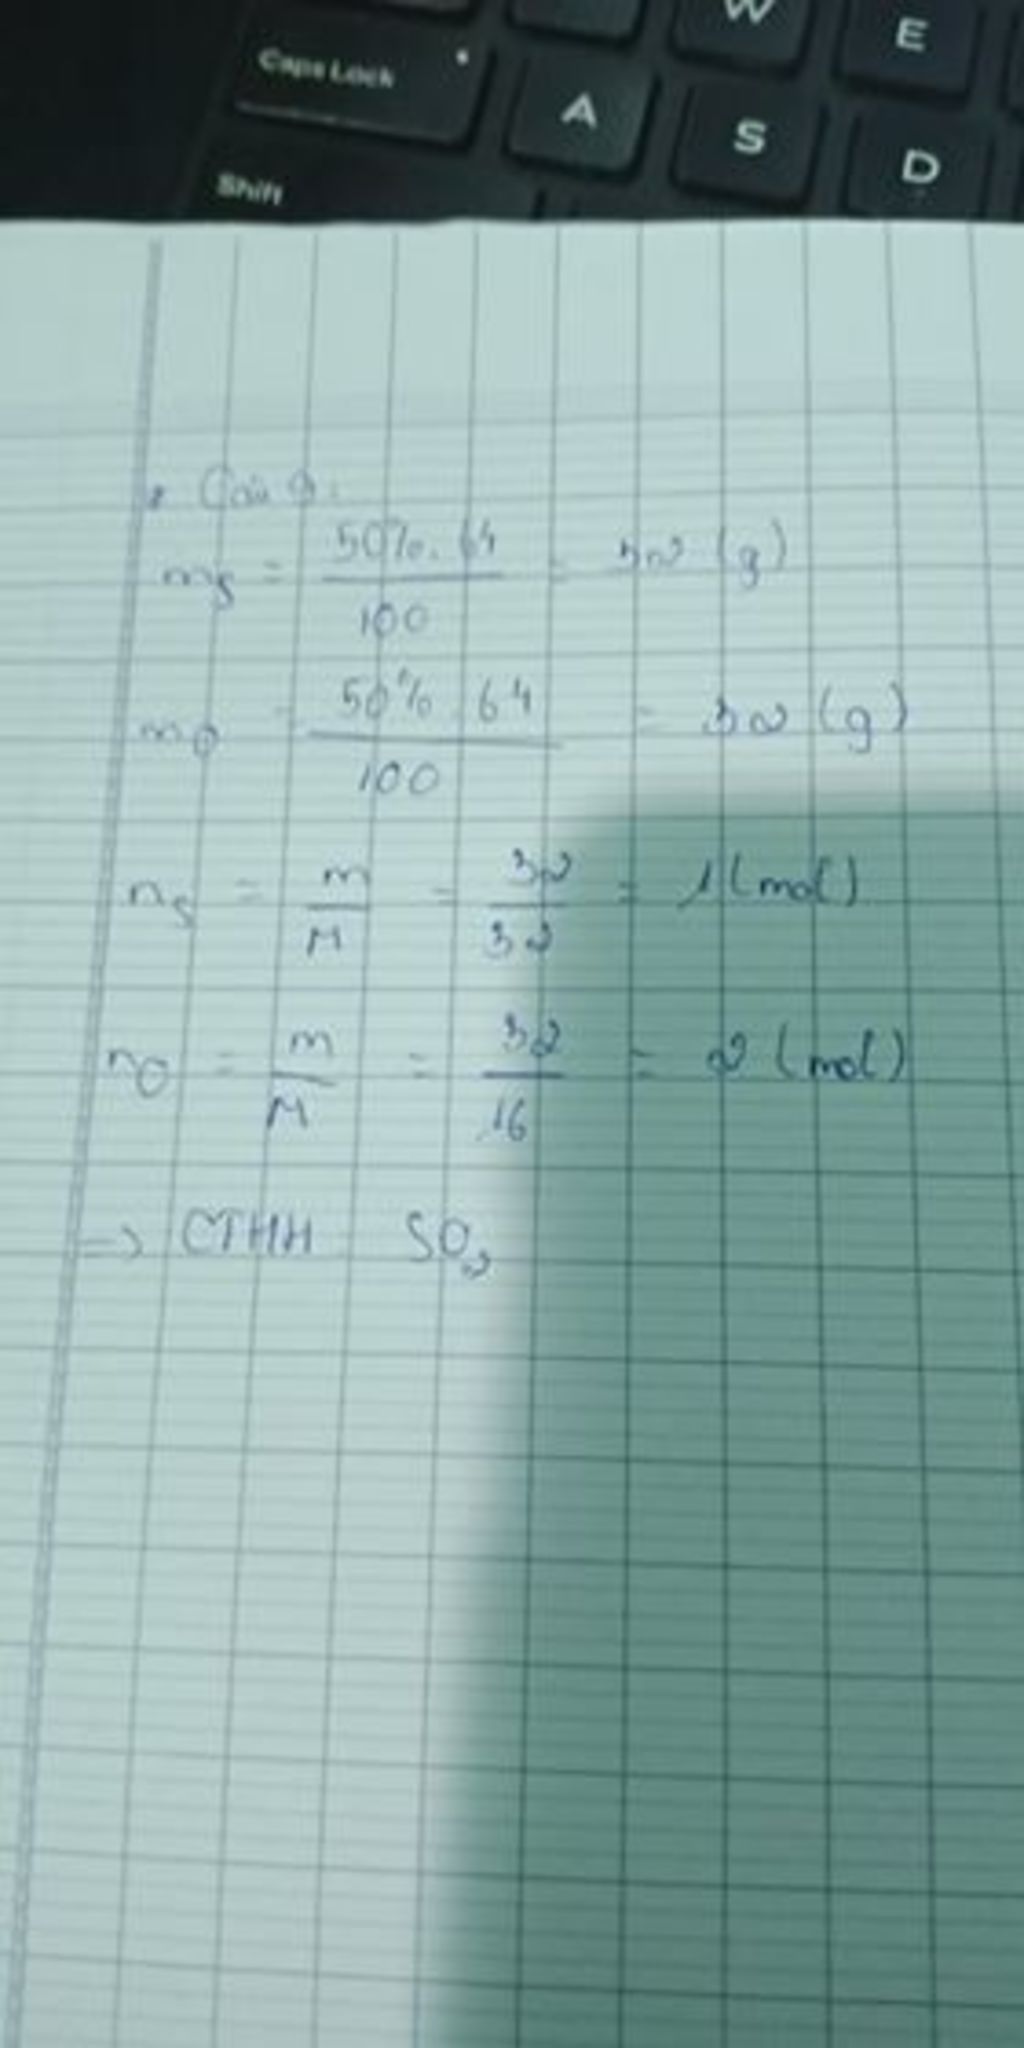 W E
Caps Lock A S D
Shift
mS = 50%. 64 / 100 = 32 (g)
mO = 50% . 64 / 100 = 32 (g)
nS = m / M = 32 / 32 = 1 (mol)
nO = m / M = 32 / 16 = 2 (mol)
=> CTHH SO2